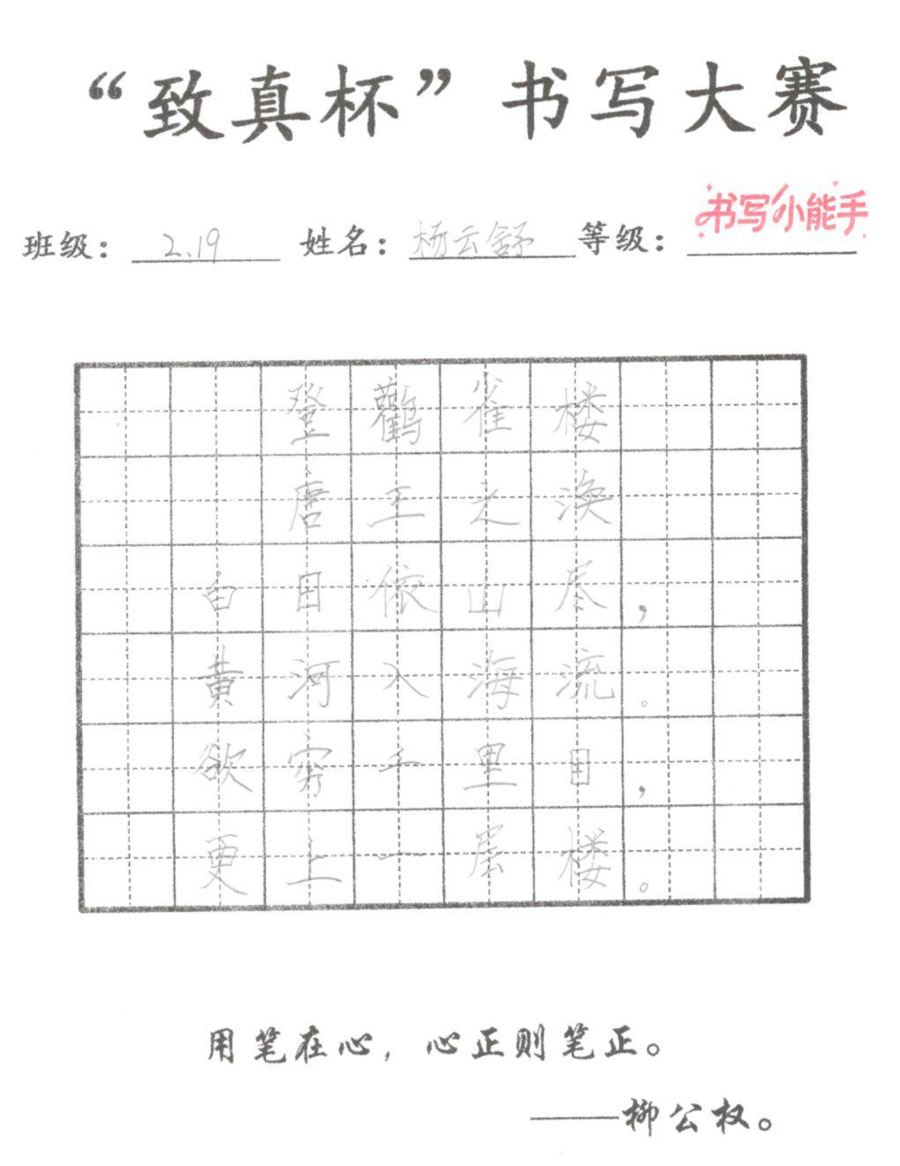 “致真杯”书写大赛
书写小能手
班级：2.19 姓名：杨云舒 等级：
登鸛雀楼
唐王之涣
白日依山尽，
黄河入海流。
欲穷千里目，
更上一层楼。
用笔在心，心正则笔正。
——柳公权。